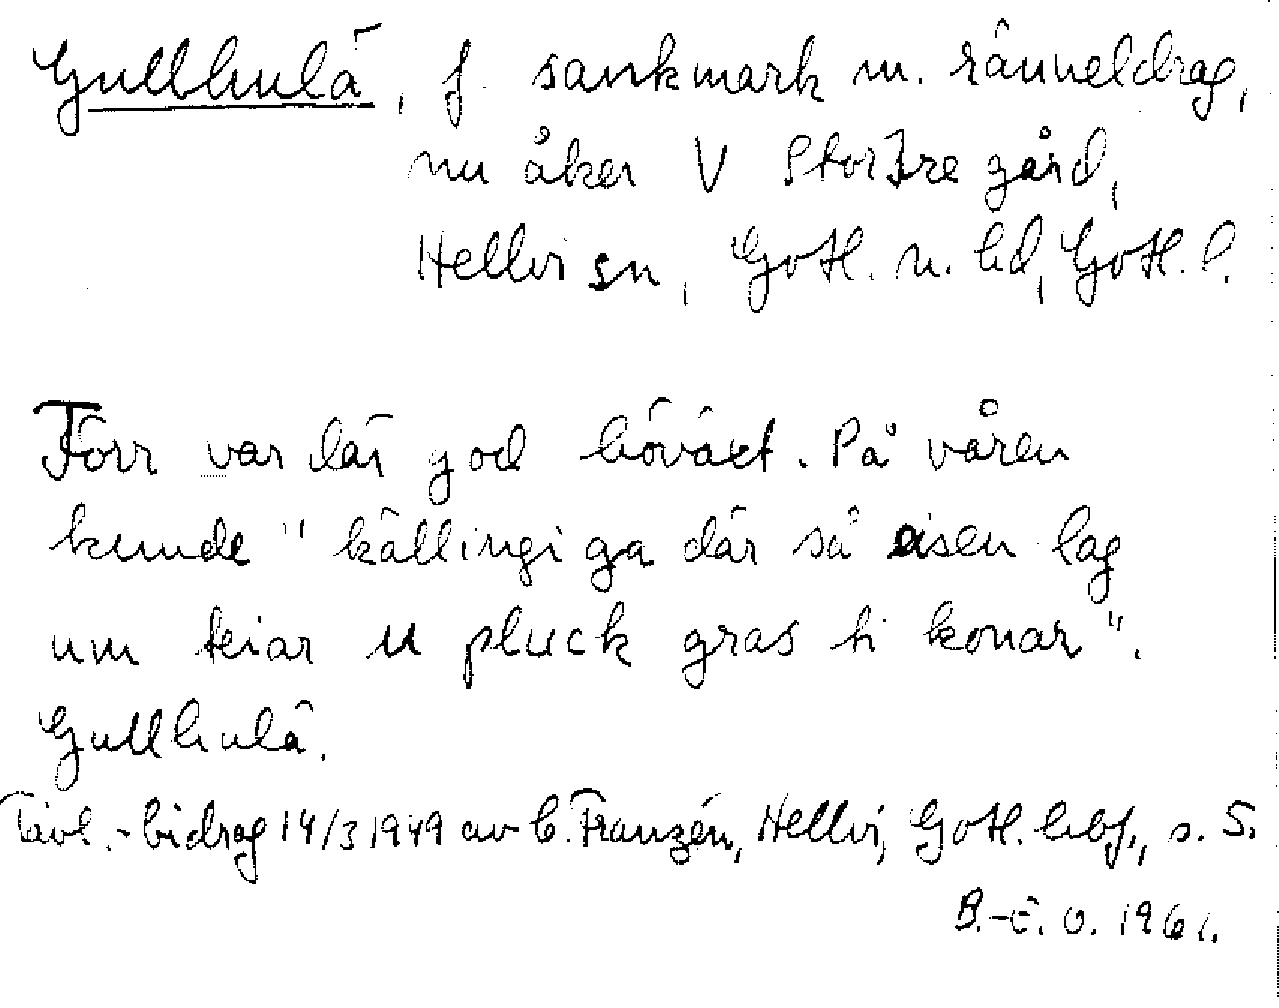 Gullhulä, f. sankmark m. ränneldrag,
nu åker V Stor Ire gård,
Hellvi sn, Gotl. n. hd, Gotl. l.
Förr var där god höväxt. På våren
kunde "källingi ga där så aisen lag
um teiar u pluck gras ti konar".
Gullhulä.
Tävl.-bidrag 14/3 1949 av C. Franzén, Hellvi, Gotl. hbf., s. 5.
B.-E. O. 1961.